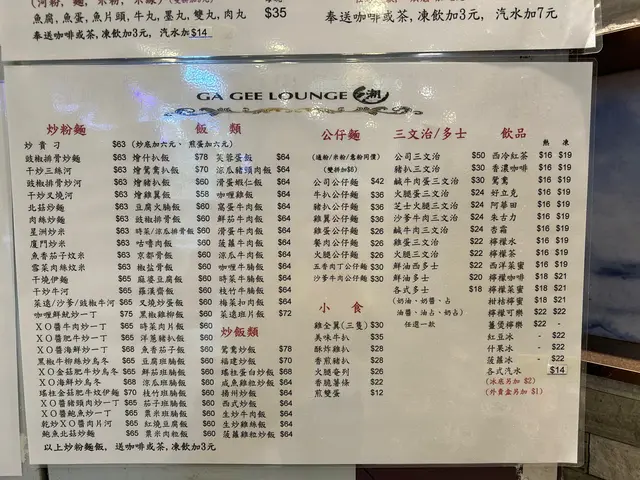 $35
魚腐，魚蛋，魚片頭，牛丸，墨丸，雙丸，肉丸
奉送咖啡或茶，凍飲加3元，汽水加$14
奉送咖啡或茶，凍飲加3元，汽水加7元
GA GEE LOUNGE 潮
炒粉麵
炒貴刁 $63
豉椒排骨炒麵 $63
干炒三絲河 $63
豉椒排骨炒河 $63
干炒叉燒河 $63
北菇炒麵 $63
肉絲炒麵 $63
星洲炒米 $63
廈門炒米 $63
魚香茄子炆米 $63
雪菜肉絲炆米 $63
干燒伊麵 $65
干炒牛河 $65
菜遠/沙爹/豉椒牛河 $65
咖喱鮮魷炒一丁 $75
XO醬牛肉炒一丁 $65
XO醬肥牛炒一丁 $65
XO醬海鮮炒一丁 $68
黑椒牛柳絲炒烏冬 $65
XO金菇肥牛炒烏冬 $65
XO海鮮炒烏冬 $68
瑤柱金菇肥牛炆伊麵 $70
XO醬豬頸肉炒一丁 $65
XO醬鮑魚炒一丁 $65
乾炒XO醬肉片河 $65
鮑魚北菇炒麵 $65
以上炒粉麵飯，送咖啡或茶，凍飲加3元
飯 類
(炒底加六元、煎蛋加六元)
燴什扒飯 $78
燴鴛鴦扒飯 $70
燴豬扒飯 $60
燴雞翼飯 $58
豆腐火腩飯 $60
豉椒排骨飯 $60
時菜/涼瓜排骨飯 $60
咕嚕肉飯 $60
京都骨飯 $60
椒鹽骨飯 $60
麻婆豆腐飯 $60
羅漢齋飯 $60
叉燒炒蛋飯 $60
黑椒雞柳飯 $60
時菜肉片飯 $60
洋蔥豬扒飯 $60
魚香茄子飯 $60
豆腐班腩飯 $60
鮮茄班腩飯 $60
涼瓜班腩飯 $60
枝竹班腩飯 $60
茄子班腩飯 $60
粟米班腩飯 $60
紅燒豆腐飯 $60
粟米肉粒飯 $60
芙蓉蛋飯 $64
涼瓜豬頸肉飯 $64
滑蛋蝦仁飯 $64
咖喱雞飯 $64
窩蛋牛肉飯 $64
鮮茄牛肉飯 $64
滑蛋牛肉飯 $64
菠蘿牛肉飯 $64
涼瓜牛肉飯 $64
咖喱牛腩飯 $64
時菜牛腩飯 $64
枝竹牛腩飯 $64
梅菜扣肉飯 $64
菜遠班片飯 $72
炒飯類
鴛鴦炒飯 $78
福建炒飯 $70
瑤柱蛋白炒飯 $68
咸魚雞粒炒飯 $64
揚州炒飯 $64
西式炒飯 $64
生炒牛肉飯 $64
生炒雞絲飯 $64
菠蘿雞粒炒飯 $64
公仔麵
(通粉/米粉/意粉同價)
(雙拼加$6)
公司公仔麵 $42
牛扒公仔麵 $36
豬扒公仔麵 $36
雞翼公仔麵 $36
雞蛋公仔麵 $26
餐肉公仔麵 $26
火腿公仔麵 $26
五香肉丁公仔麵 $30
沙爹牛肉公仔麵 $30
小 食
雞全翼(三隻) $30
美味牛扒 $35
酥炸雞扒 $28
香煎豬扒 $28
火腿奄列 $26
香脆薯條 $22
煎雙蛋 $12
三文治/多士
公司三文治 $50
豬扒三文治 $30
鹹牛肉蛋三文治 $30
火腿蛋三文治 $24
芝士火腿三文治 $24
沙爹牛肉三文治 $24
鹹牛肉三文治 $24
雞蛋三文治 $22
火腿三文治 $22
鮮油西多士 $22
鮮油多士 $20
各式多士 $18
(奶油、奶醬、占
油醬、油占、奶占)
任選一款
飲品
熱 凍
西冷紅茶 $16 $19
香濃咖啡 $16 $19
鴛鴦 $16 $19
好立克 $16 $19
阿華田 $16 $19
朱古力 $16 $19
杏霜 $16 $19
檸檬水 $16 $19
檸檬茶 $16 $19
西洋菜蜜 $16 $19
檸檬咖啡 $18 $21
檸檬菜蜜 $18 $21
柑桔檸蜜 $18 $21
檸檬可樂 $22 $22
薑煲檸樂 $22 -
紅豆冰 - $22
什果冰 - $22
菠蘿冰 - $22
各式汽水 $14
(冰底另加 $2)
(外賣盒另加 $1)